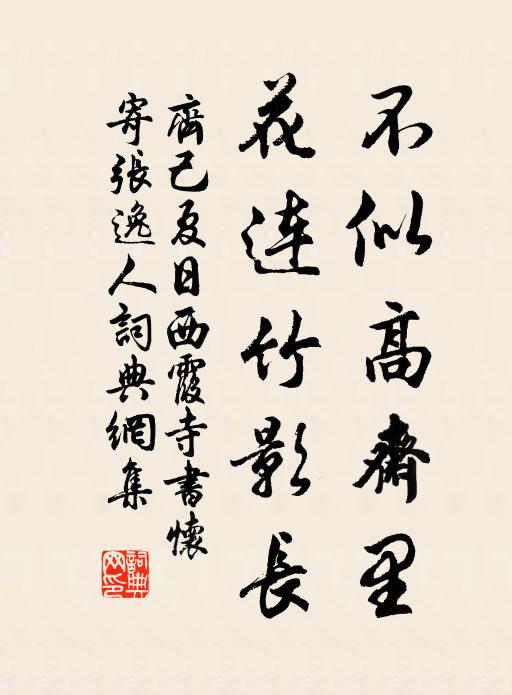 不似高齋里
花連竹影長
齊己夏日西霞寺書懷
寄張逸人詞典網集
詞典网印